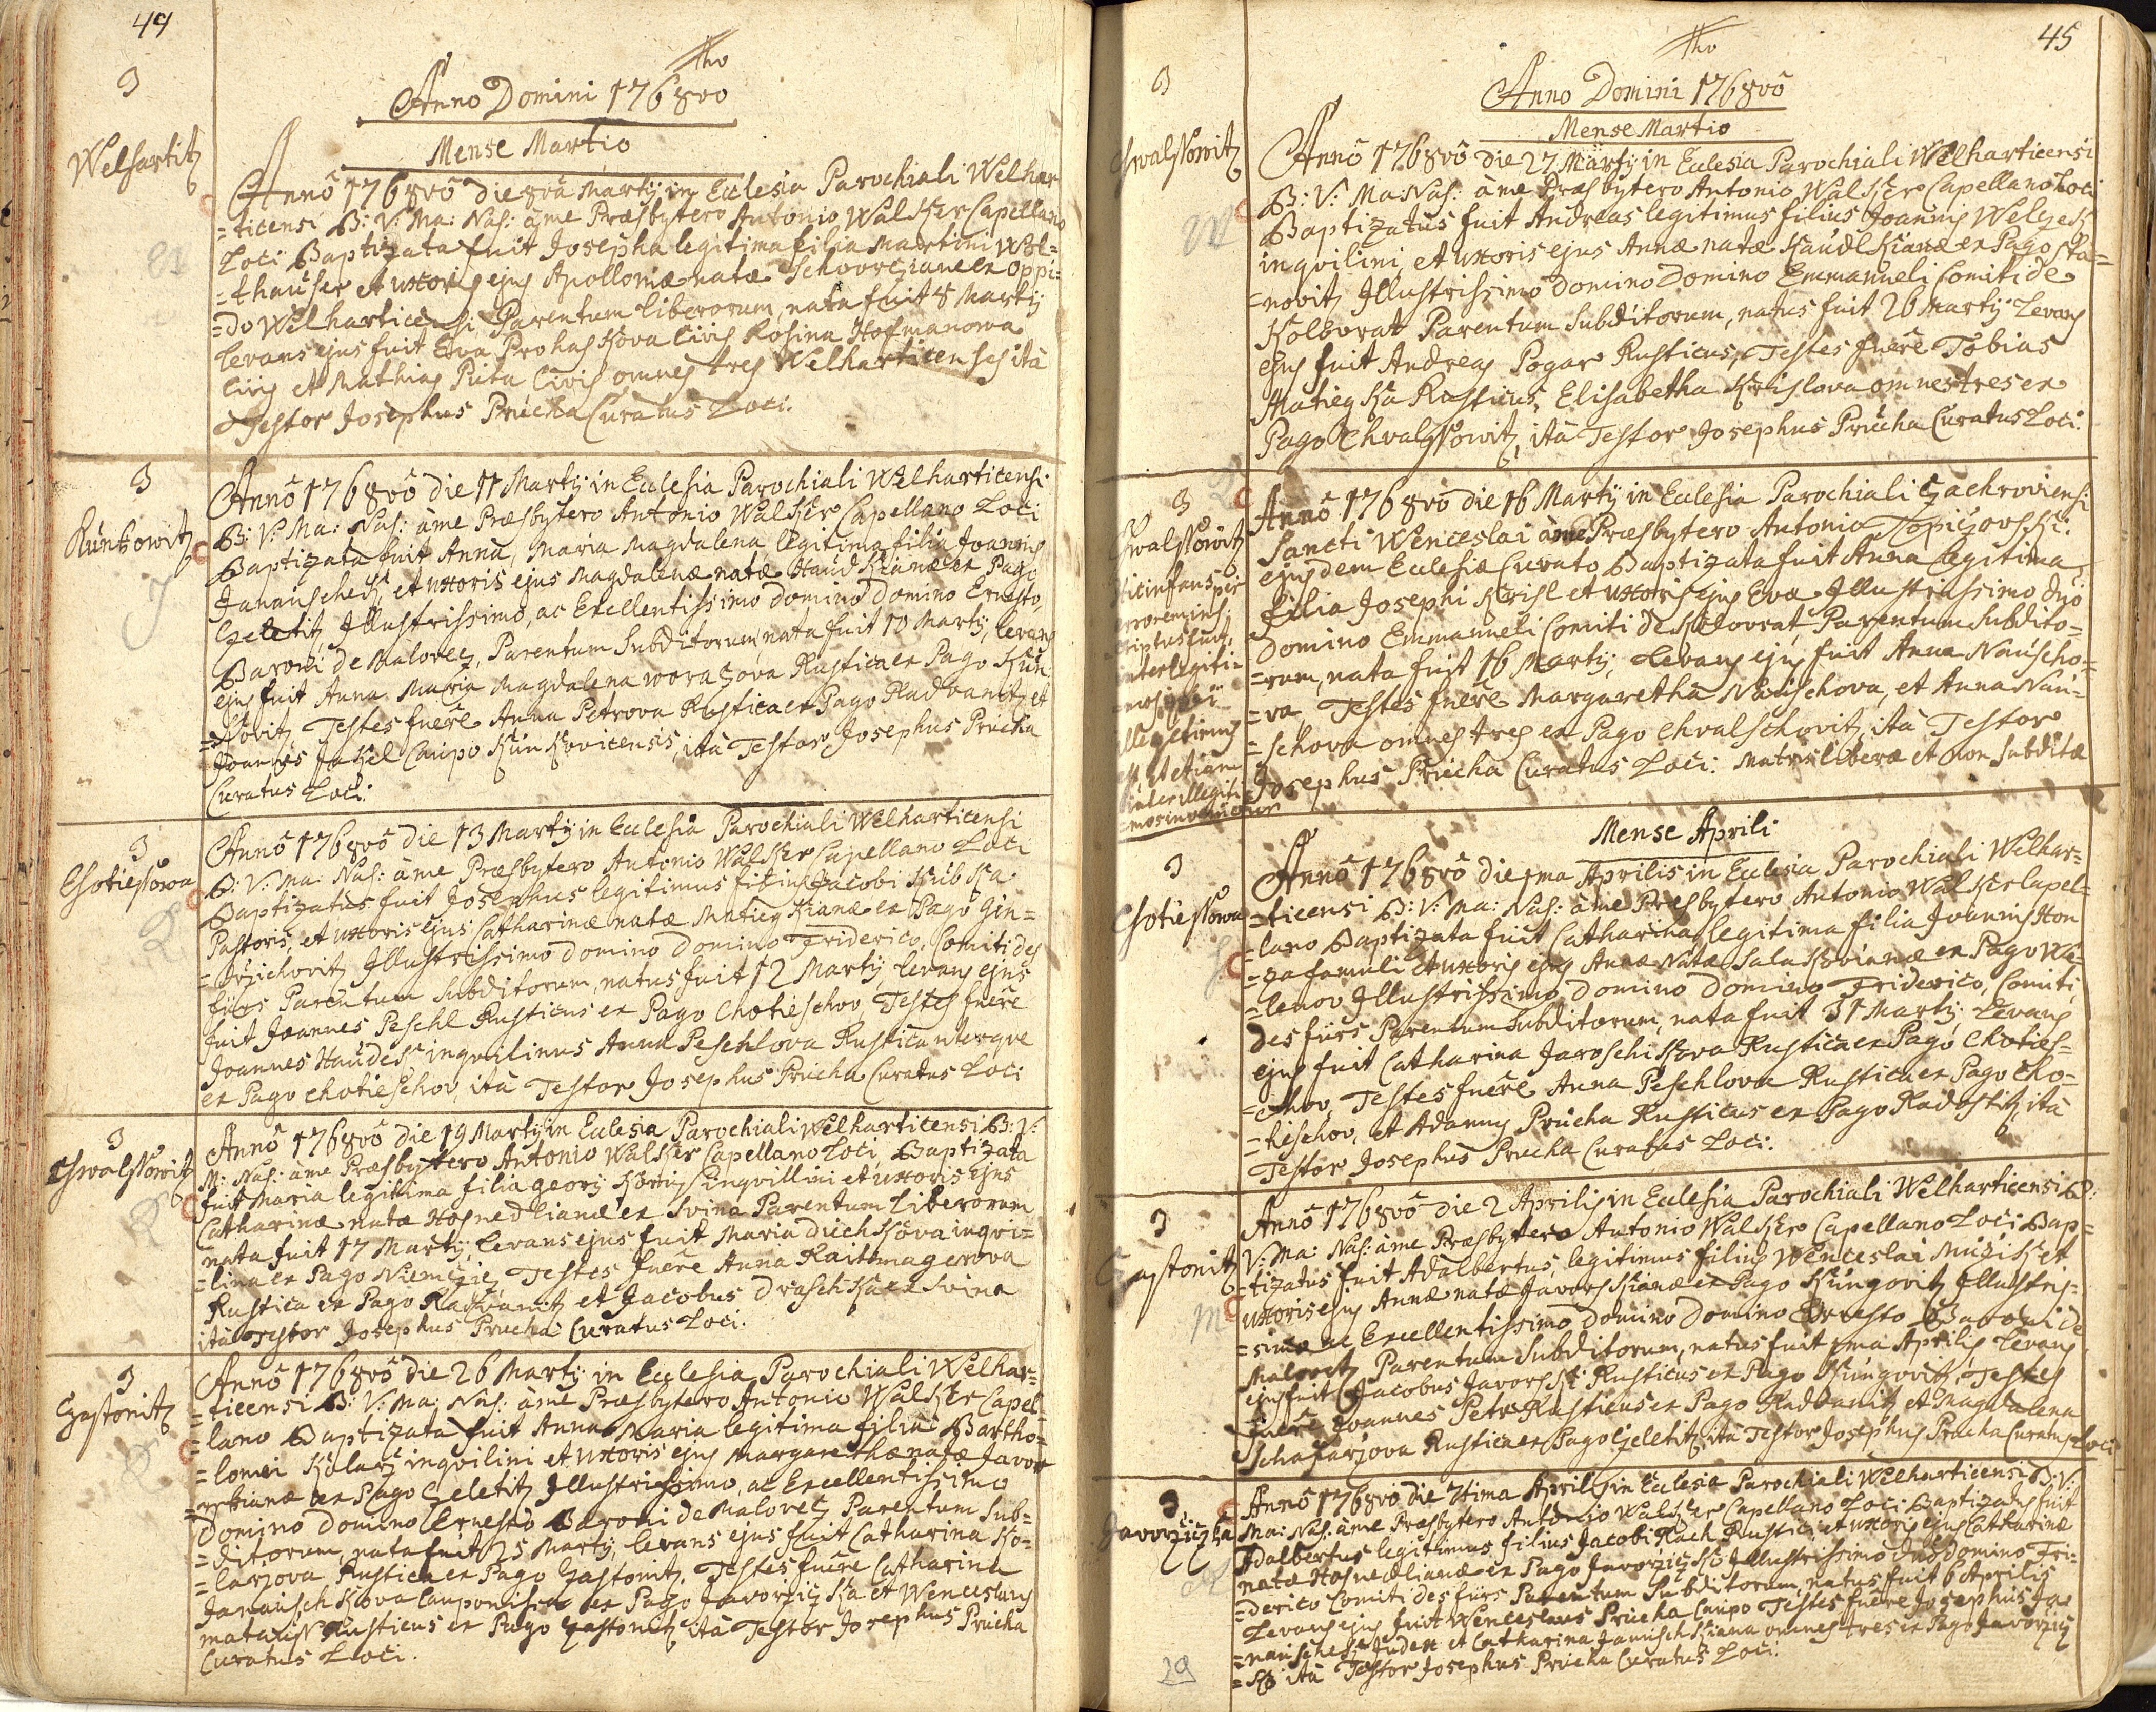 44
tho
Anno Domini 1768vo
Mense Martio
3
Welhartitz
Annô 1768vô die 8va Martij in Eclesia Parochiali Welhar
=ticensi B: V: Ma: Nas: âme Præsbytero Antonio Walker Capellano
Loci Baptizata fuit Josepha legitima filia Martini Wol=
=thauser et uxoris ejus Apolloniæ natæ Schvorzianæ ex Oppi=
=do Welharticensi Parentum liberorum, nata fuit 8 Martij
levans ejus fuit Eva Prohaskova Civis Rosina Hofmanowa
Civis et Mathias Puta Civis omnes tres Welharticenses ità
Testor Josephus Prucha Curatus Loci.
3
Kunkowitz
Annô 1768vô die 11 Martij in Eclesia Parochiali Welharticensi
B: V: Ma: Nas: âme Præsbytero Antonio Walker Capellano Loci
Baptizata fuit Anna, Maria Magdalena legitima filia Joannis
Janauschek, et uxoris ejus Magdalenæ natæ Haudkianæ ex Pago
Czeletitz, Illustrissimo, ac Excellentissimo Domino Domino Ernesto,
Baroni de Malovetz, Parentum Subditorum, nata fuit 10 Martij, levans
ejus fuit Anna Maria Magdalena woraczova Rustica ex Pago Kun
=kovitz Testes fuere Anna Petrova Rustica ex Pago Radvanitz et
Joannes Jakel Caupo Kunkovicensis, ità Testor Josephus Prucha
Curatus Loci.
3
Chotiessowa
Annô 1768vô die 13 Martij in Eclesia Parochiali Welharticensi
B: V: Ma: Nas: âme Præsbytero Antonio Walker Capellano Loci
Baptizatus fuit Josephus legitimus filius Jacobi Kubka
Pastoris, et uxoris ejus Catharinæ natæ Matiegkianæ ex Pago Gin=
=drzichovitz Illustrissimo Domino Domino Friderico, Comiti des
fürs Parentum Subditorum, natus fuit 12 Martij, levans ejus
fuit Joannes Peschl Rusticus ex Pago Chotieschov, Testes fuere
Joannes Haudek inqvilinus Anna Peschlova Rustica uterque
ex Pago Chotieschov, ità Testor Josephus Prucha Curatus Loci
3
Chwalssowitz
Annô 1768vô die 19 Martij in Eclesia Parochiali Welharticensi B: V:
M: Nas: âme Præsbytero Antonio Walker Capellano Loci Baptizata
fuit Maria legitima filia Georij König inqvillini et uxoris ejus
Catharinæ natæ Hosnedlianæ ex Svina Parentum Liberorum
nata fuit 17 Martij, levans ejus fuit Maria Duchkova inqvi=
=lina ex Pago Niemczitz Testes fuere Anna Raitmagerova
Rustica ex Pago Radvanitz et Jacobus Draschka ex Svina
ità Testor Josephus Prucha Curatus Loci.
3
Czastonitz
Annô 1768vô die 26 Martij in Eclesia Parochiali Welhar=
=ticensi B: V: Ma: Nas: âme Præsbytero Antonio Walker Capel=
=lano Baptizata fuit Anna Maria legitima filia Bartho=
=lomei Kolarz inqvilini et uxoris ejus Margarethæ natæ Javor
=skianæ ex Pago Czeletitz Illustrissimo, ac Excellentissimo
Domino Domino Ernesto Baroni de Malovetz Parentum Sub=
=ditorum, nata fuit 25 Martij, levans ejus fuit Catharina Ko=
=larzova Rustica ex Pago Zastonitz. Testes fuere Catharina
Janauschkova Cauponissa ex Pago Javorziczka et Wenceslaus
Matauss Rusticus ex Pago Zastonitz ità Testor Josephus Prucha
Curatus Loci.
45
tho
Anno Domini 1768vô
Mense Martio
3
Chwalssowitz
Annô 1768vô die 27 Martij in Eclesia Parochiali Welharticensi
B: V: Ma: Nas: âme Præsbytero Antonio Walker Capellano Loci
Baptizatus fuit Andreas legitimus filius Joannis Welzek
inqvilini, et uxoris ejus Annæ natæ Haudkianæ ex Pago Sta=
=novitz Illustrissimo Domino Domino Emmanueli Comiti de
Kolovrat Parentum Subditorum, natus fuit 26 Martij Levans
ejus fuit Andreas Pogar Rusticus, Testes fuere Tobias
Matiegka Rusticus, Elisabetha Krislova omnes tres ex
Pago Chvalssowitz, ità Testor Josephus Prucha Curatus Loci.
3
Chwalssowitz
Annô 1768vô die 16 Martij in Eclesia Parochiali Czachroviensi
Sancti Wenceslai âme Præsbytero Antonio Topiczovski
ejusdem Eclesiæ Curato Baptizata fuit Anna legitima
filia Josephi Krisl et uxoris ejus Evæ Illustrissimo Dño
Domino Emmanueli Comiti de Kolovrat, Parentum Subdito=
=rum, nata fuit 16 Martij, Levans ejus fuit Anna Nauscho=
=va, Testes fuere Margaretha Nauschova, et Anna Nau=
=schova omnes tres ex Pago Chvalschovitz ità Testor
Josephus Prucha Curatus Loci. Matris liberæ et non Subditæ
Mense Aprili
3
Chotiessowa
Annô 1768vô die 1ma Aprilis in Eclesia Parochiali Welhar=
=ticensi B: V: Ma: Nas: âme Præsbytero Antonio Walker Capel=
=lano Baptizata fuit Catharina legitima filia Joannis Hon
=za famuli et uxoris ejus Annæ Natæ Salakovianæ ex Pago We=
=lenov Illustrissimo Domino Domino Friderico, Comiti,
des fürs Parentum Subditorum, nata fuit 31 Martij. Levans
ejus fuit Catharina Jaroschikova Rustica ex Pago Choties=
=chov, Testes fuere Anna Peschlova Rustica ex Pago Cho=
=tieschov, et Adamus Prucha Rusticus ex Pago Radostitz ità
Testor Josephus Prucha Curatus Loci.
3
Czastonitz
Annô 1768vô die 2 Aprilis in Eclesia Parochiali Welharticensi B:
V: Ma: Nas: âme Præsbytero Antonio Walker Capellano Loci Bap=
=tizatus fuit Adalbertus, legitimus filius Wenceslai Muzik et
uxoris ejus Annæ natæ Javorskianæ ex Pago Kungovitz Illustris=
=simo ac Excellentissimo Domino Domino Ernesto Baroni de
Malovetz Parentum Subditorum, natus fuit 1ma Aprilis Levans
ejus fuit Jacobus Javorski Rusticus ex Pago Kungovitz, Testes
fuere Joannes Petr Rusticus ex Pago Radvanitz et Magdalena
Schafarzova Rustica ex Pago Czeletitz ità Testor Josephus Prucha Curatus Loci
3
Javorziczka
Annô 1768vo die 7tima Aprilis in Eclesia Parochiali Welharticensi B: V:
Ma: Nas: âme Præsbytero Antonio Walker Capellano Loci Baptizatus fuit
Adalbertus legitimus filius Jacobi Kach Rustici et uxoris ejus Catharinæ
natæ Hosnedlianæ ex Pago Javorziczko Illustrissimo Dño Domino Fri=
=derico Comiti des fürs Parentum Subditorum, natus fuit 6 Aprilis
Levans ejus fuit Wenceslaus Prucha Caupo Testes fuere Josephus Ja=
=nauschek Judex et Catharina Janauschkiana omnes tres ex Pago Javorzicz
=ko ità Testor Josephus Prucha Curatus Loci.
29